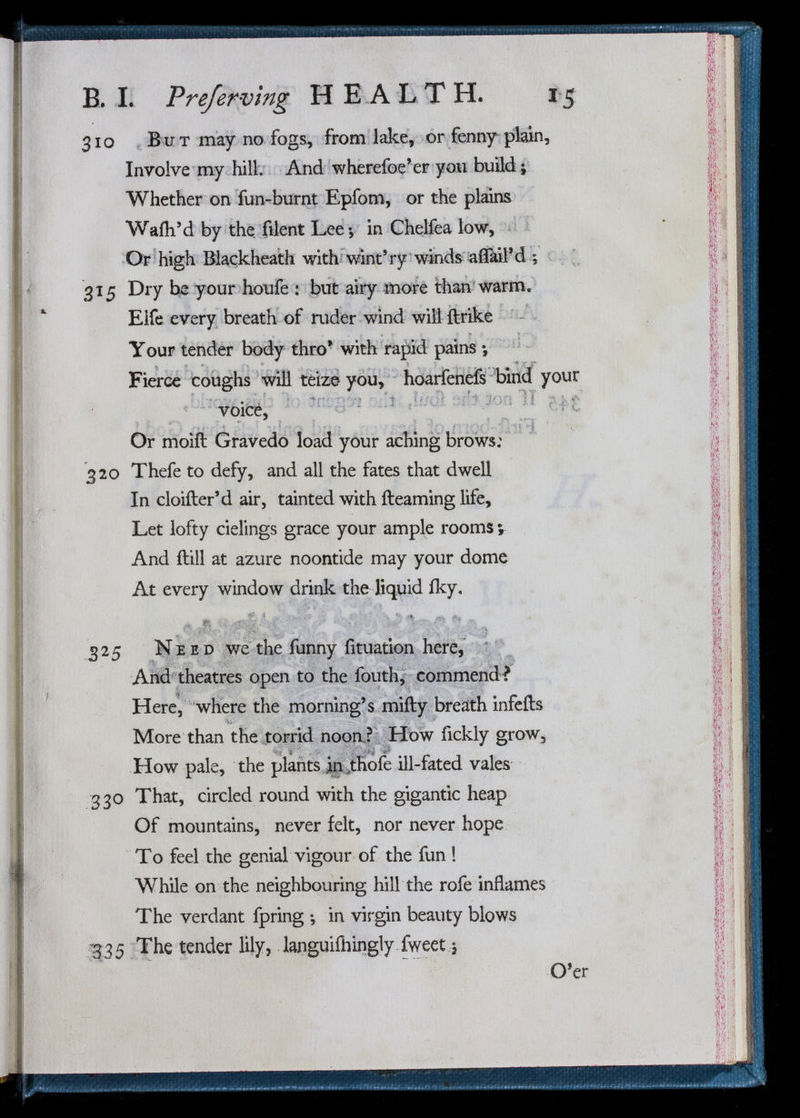 B. I. Preſerving HEALTH. 15
310 BUT may no fogs, from lake, or fenny plain,
Involve my hill. And wherefoe'er you build;
Whether on ſun-burnt Epſom, or the plains
Waſh'd by the ſilent Lee; in Chelſea low,
Or high Blackheath with wint'ry winds aſſail'd;
315 Dry be your houſe: but airy more than warm.
Elſe every breath of ruder wind will ſtrike
Your tender body thro' with rapid pains;
Fierce coughs will teize you, hoarſeneſs bind your
voice,
Or moiſt Gravedo load your aching brows.
320 Theſe to defy, and all the fates that dwell
In cloiſter'd air, tainted with ſteaming life,
Let lofty cielings grace your ample rooms;
And ſtill at azure noontide may your dome
At every window drink the liquid ſky.
325 NEED we the ſunny ſituation here,
And theatres open to the ſouth, commend?
Here, where the morning's miſty breath infeſts
More than the torrid noon? How ſickly grow,
How pale, the plants in thoſe ill-fated vales
330 That, circled round with the gigantic heap
Of mountains, never felt, nor never hope
To feel the genial vigour of the ſun!
While on the neighbouring hill the roſe inflames
The verdant ſpring; in virgin beauty blows
335 The tender lily, languiſhingly ſweet;
O'er